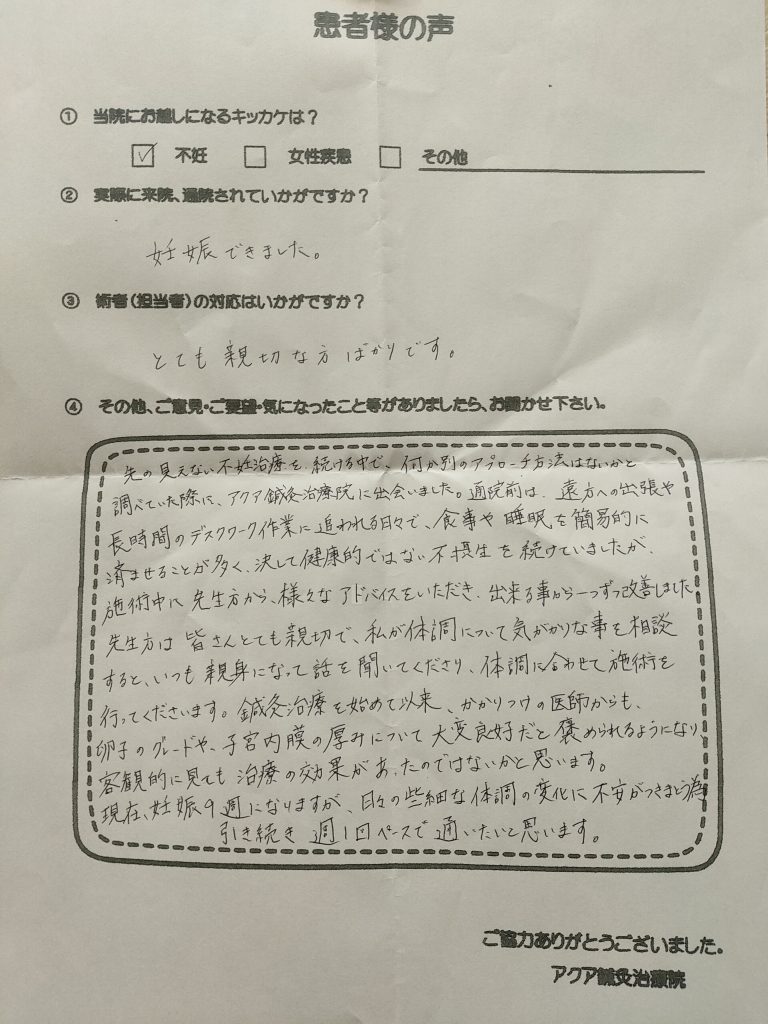 患者様の声
① 当院にお越しになるキッカケは？
☑ 不妊 □ 女性疾患 □ その他
② 実際に来院、通院されていかがですか？
妊娠できました。
③ 術者（担当者）の対応はいかがですか？
とても親切な方ばかりです。
④ その他、ご意見・ご要望・気になったこと等がありましたら、お聞かせ下さい。
先の見えない不妊治療を続ける中で、何か別のアプローチ方法はないかと
調べていた際に、アクア鍼灸治療院に出会いました。通院前は、遠方への出張や
長時間のデスクワーク作業に追われる日々で、食事や睡眠を簡易的に
済ませることが多く、決して健康的ではない不摂生を続けていましたが、
施術中に先生方から、様々なアドバイスをいただき、出来る事から一つずつ改善しました。
先生方は皆さんとても親切で、私が体調について気がかりな事を相談
すると、いつも親身になって話を聞いてくださり、体調に合わせて施術を
行ってくださいます。鍼灸治療を始めて以来、かかりつけの医師からも、
卵子のグレードや、子宮内膜の厚みについて大変良好だと褒められるようになり、
客観的に見ても治療の効果があったのではないかと思います。
現在、妊娠9週になりますが、日々の些細な体調の変化に不安がつきまとう為
引き続き週1回ペースで通いたいと思います。
ご協力ありがとうございました。
アクア鍼灸治療院